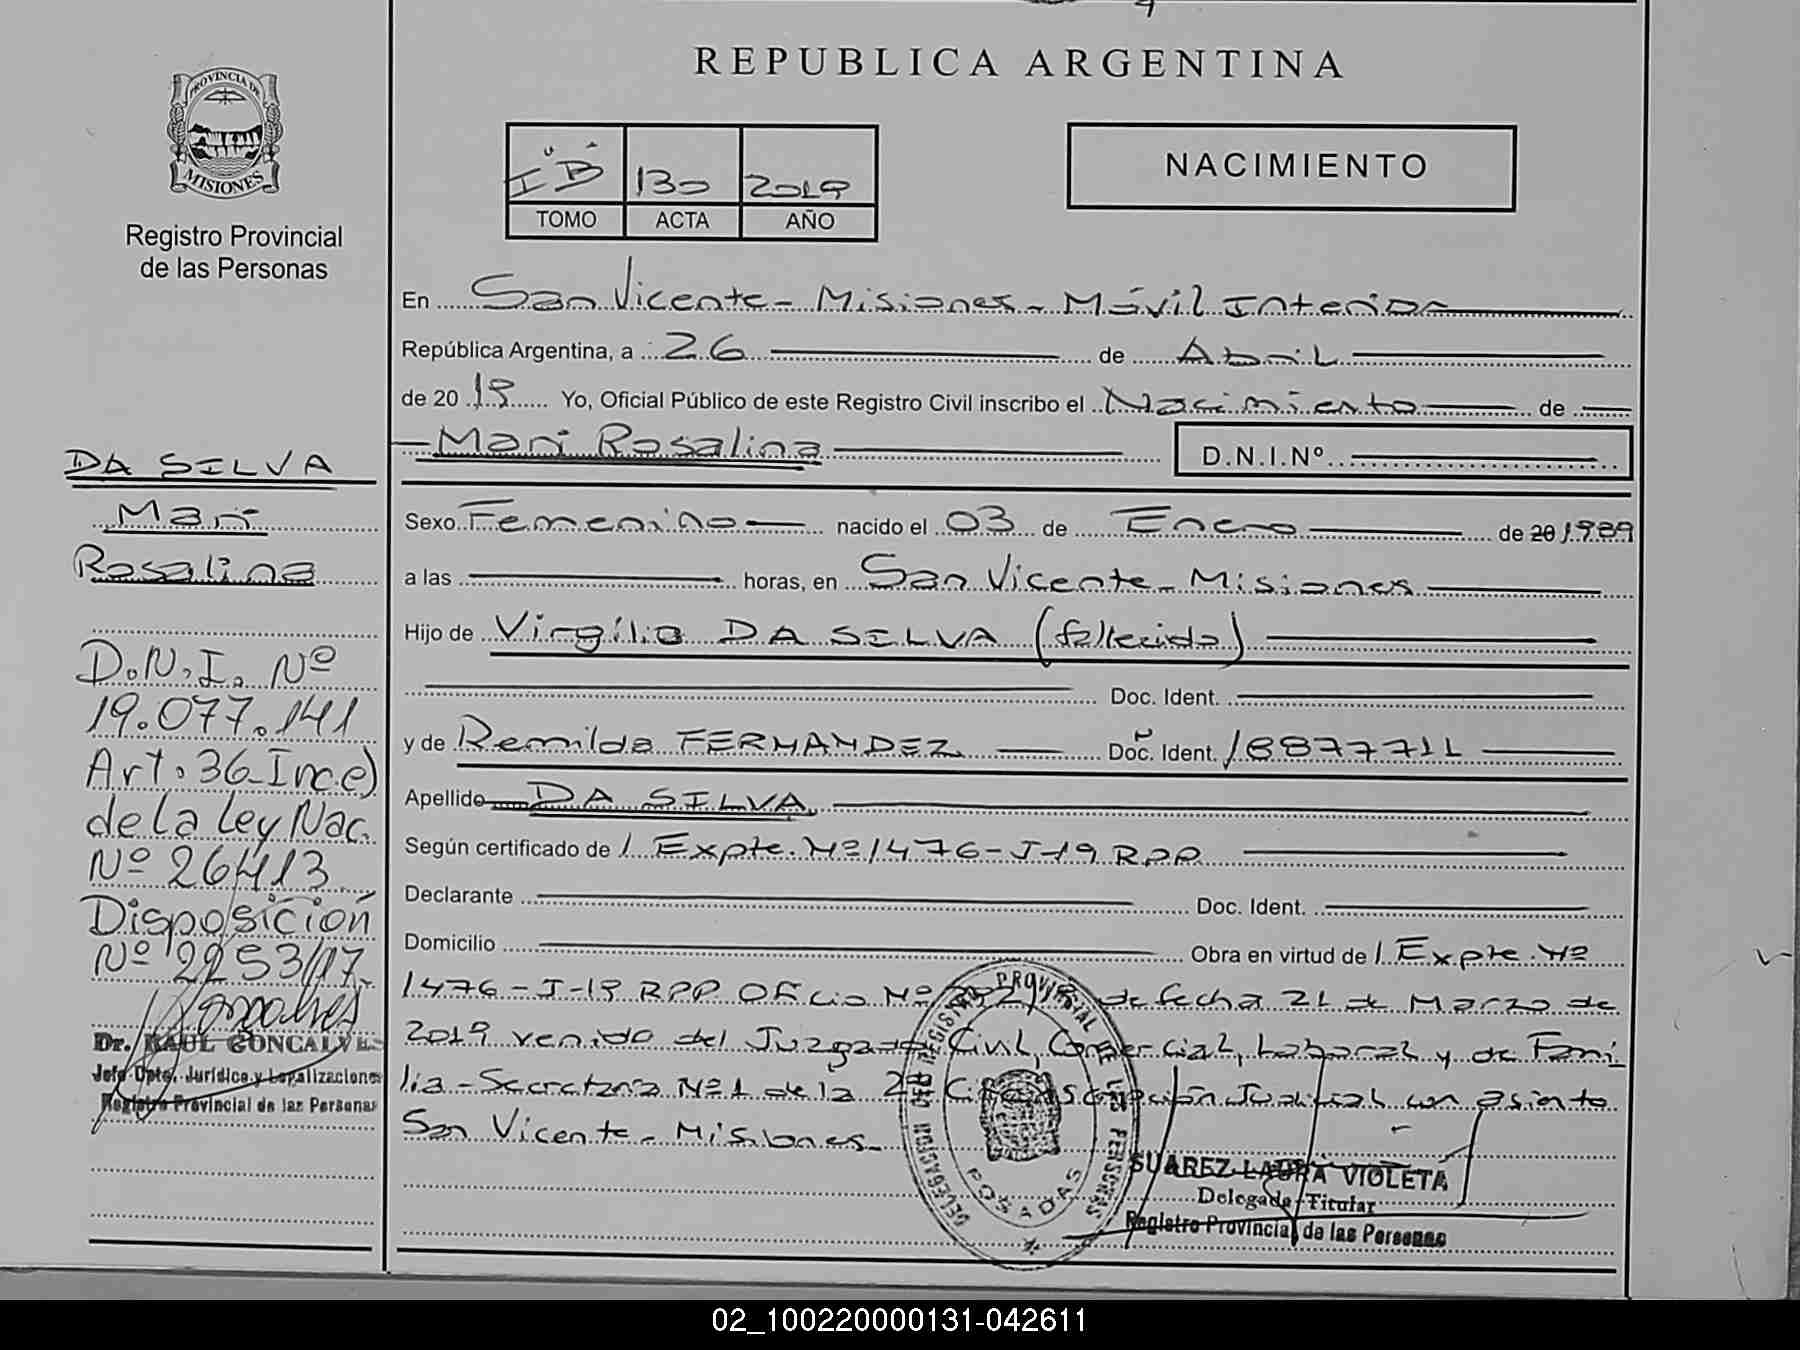 REPUBLICA ARGENTINA
PROVINCIA DE
MISIONES
Registro Provincial
de las Personas
I "B" 130 2019
TOMO ACTA AÑO
NACIMIENTO
En San Vicente - Misiones - Móvil Interior
República Argentina, a 26 de Abril
de 2019 Yo, Oficial Público de este Registro Civil inscribo el Nacimiento de
Mari Rosalina D.N.I.Nº
Sexo Femenino nacido el 03 de Enero de 20 1989
a las horas, en San Vicente - Misiones
Hijo de Virgilio DA SILVA (fallecido)
Doc. Ident.
y de Remilda FERNANDEZ Doc. Ident. 18877711
Apellido DA SILVA
Según certificado de Expte. Nº 1476-J-19 RPP
Declarante Doc. Ident.
Domicilio Obra en virtud de Expte. Nº
1476-J-19 RPP Oficio Nº de fecha 21 de Marzo de
2019 venido del Juzgado Civil, Comercial, Laboral y de Fami
lia - Secretaria Nº 1 de la 2º Circunscripción Judicial con asiento
San Vicente - Misiones -
DELEGACION DEL REGISTRO PROVINCIAL DE LAS PERSONAS
POSADAS
SUAREZ LAURA VIOLETA
Delegada Titular
Registro Provincial de las Personas
DA SILVA
Mari
Rosalina
D.N.I. Nº
19.077.141
Art. 36 Inc e)
de la Ley Nac.
Nº 26413
Disposición
Nº 2253/17.
Goncalves
Dr. RAUL GONCALVES
Jefe Dpto. Jurídico y Legalizaciones
Registro Provincial de las Personas
02_100220000131-042611